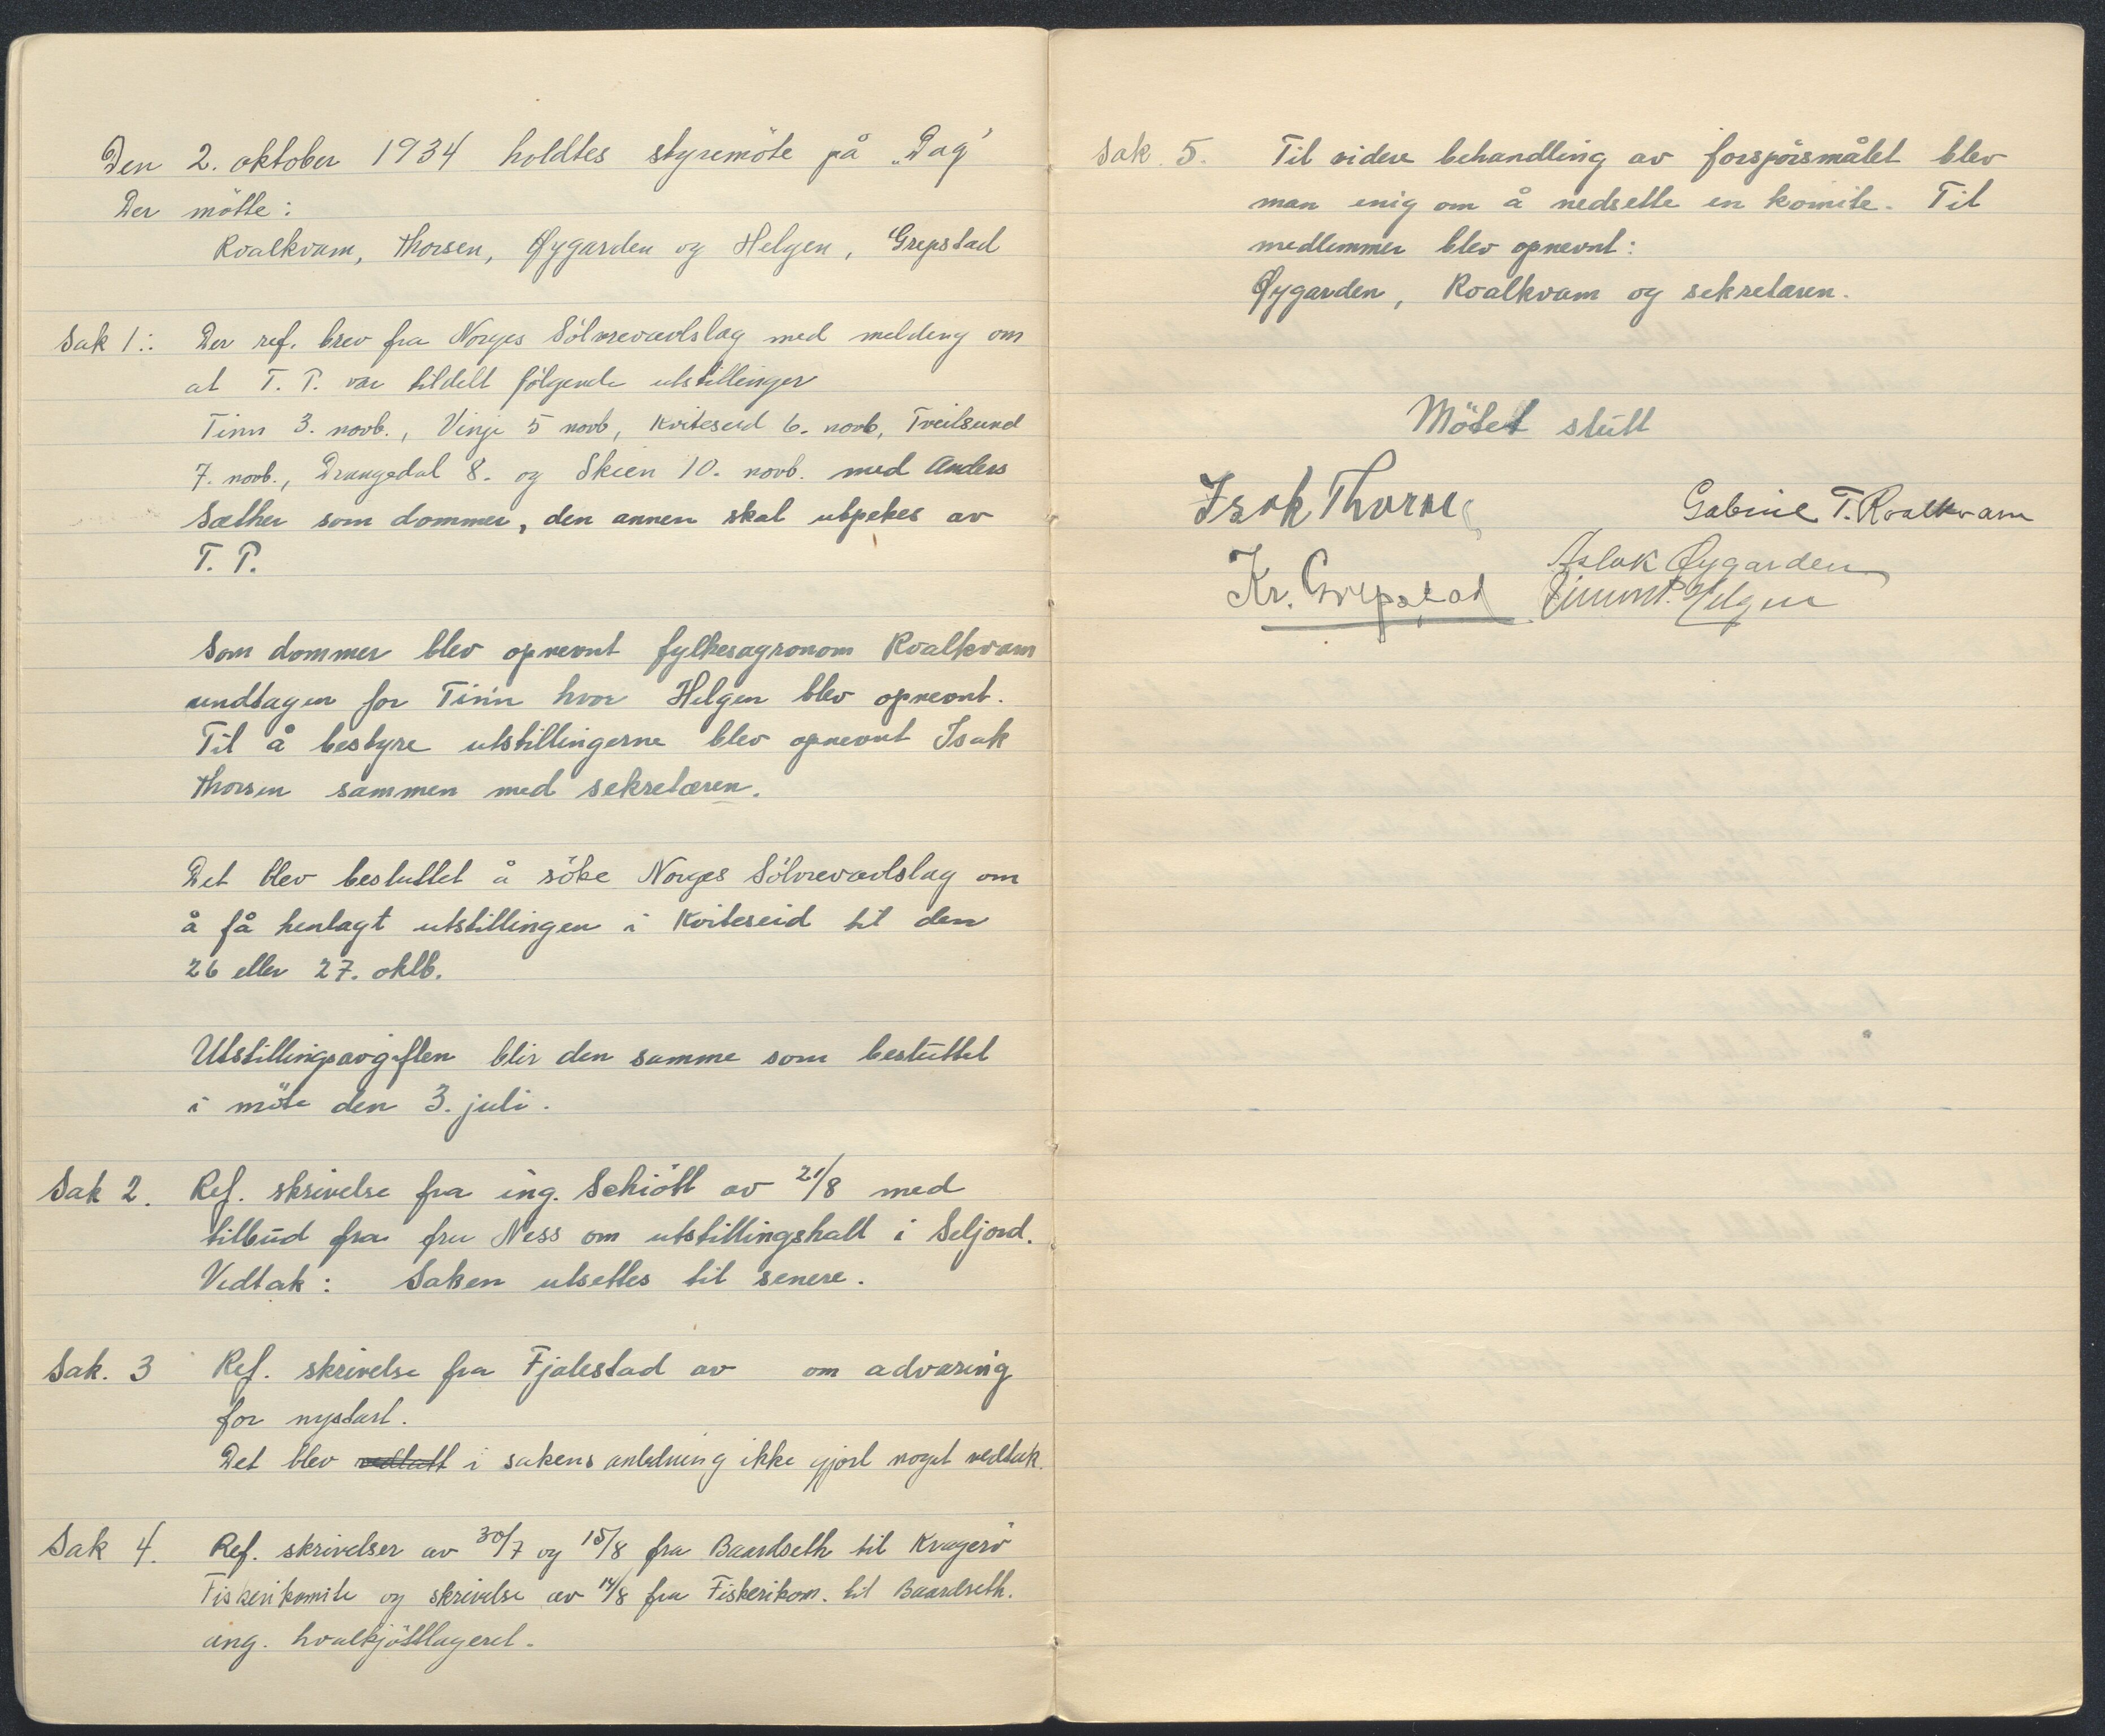 Den 2. oktober 1934 holdtes styremöte på „Dag"
Der mötte:
Roalkvam, Thorsen, Øygarden og Helgen, Grepstad
Sak 1.: Der ref. brev fra Norges Sölvrevavlslag med melding om
at T. P. var tildelt fölgende utstillinger
Tinn 3. novb., Vinje 5 novb, Kviteseid 6. novb, Treitsund
7. novb., Drangedal 8. og Skien 10. novb. med Anders
Sæther som dommer, den annen skal utpekes av
T. P.
Som dommer blev opnevnt fylkesagronom Roalkvam
undtagen for Tinn hvor Helgen blev opnevnt.
Til å bestyre utstillingerne blev opnevnt Isak
Thorsen sammen med sekretæren.
Det blev besluttet å söke Norges Sölvrevavlslag om
å få henlagt utstillingen i Kviteseid til den
26 eller 27. oktb.
Utstillingsavgiften blir den samme som besluttet
i möte den 3. juli.
Sak 2. Ref. skrivelse fra ing. Schiött av 21/8 med
tilbud fra fru Ness om utstillingshall i Seljord.
Vedtak: Saken utsettes til senere.
Sak. 3 Ref. skrivelse fra Fjalestad av om advaring
for nystart.
Det blev vedtatt i sakens anledning ikke gjort noget vedtak.
Sak 4. Ref. skrivelser av 30/7 og 15/8 fra Baardseth til Kragerö
Fiskerikomite og skrivelse av 14/8 fra Fiskerikom. til Baardseth.
ang. hvalkjöttlageret.
Sak. 5. Til videre behandling av forspörsmålet blev
man enig om å nedsette en komite. Til
medlemmer blev opnevnt:
Øygarden, Roalkvam og sekretæren.
Mötet slutt
Isak Thorsen Gabriel T. Roalkvam
Aslak Øygarden
Kr. Grepstad Simon P. Helgen